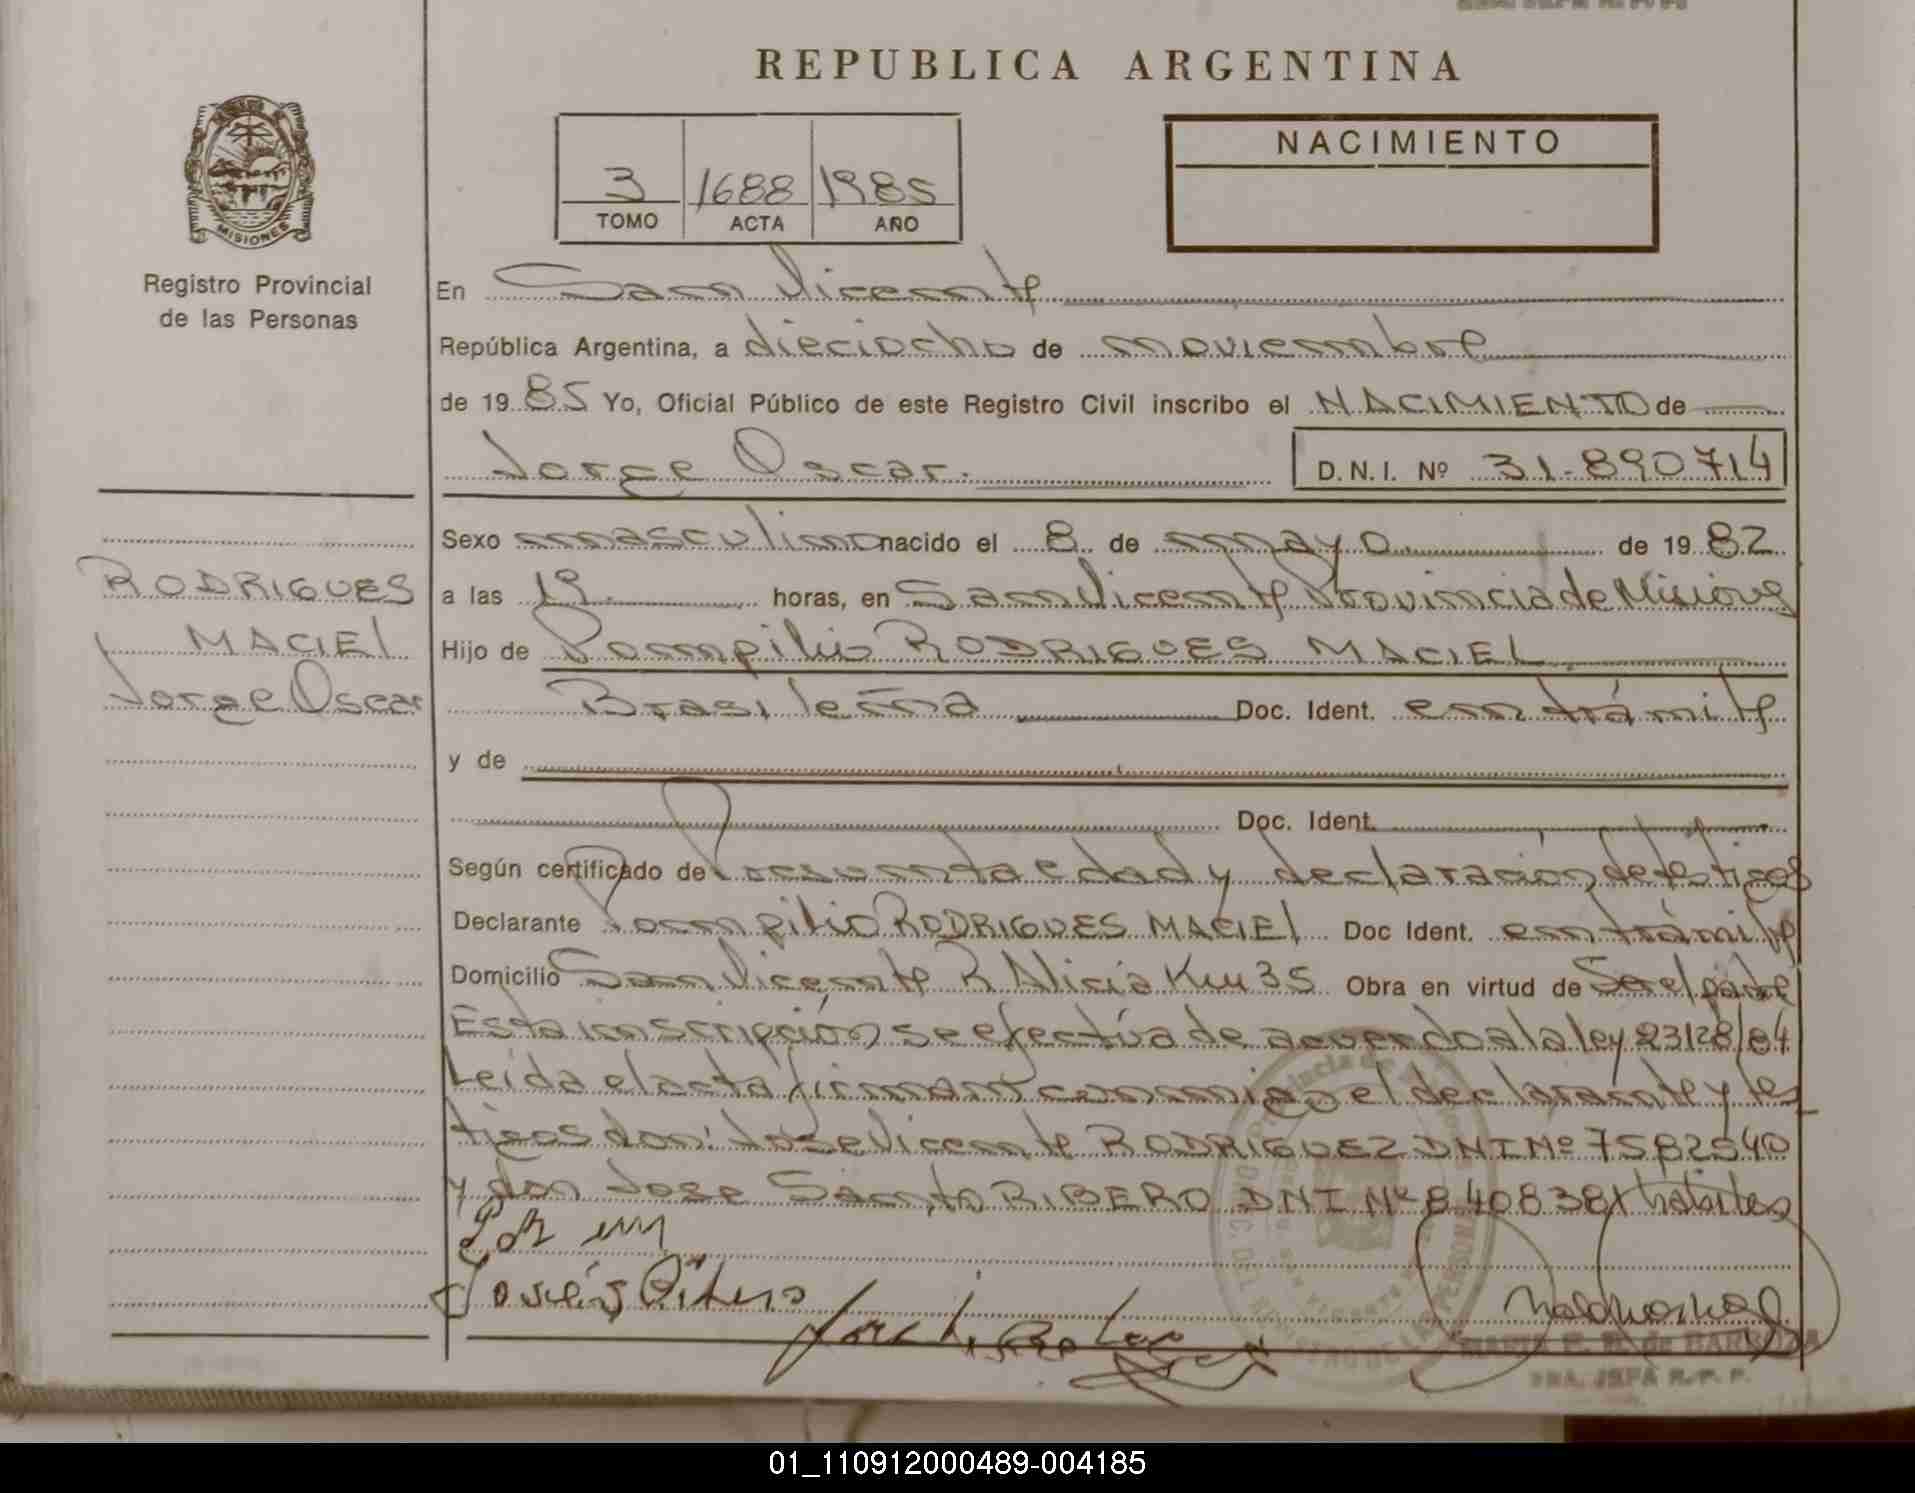 REPUBLICA ARGENTINA
NACIMIENTO
3 1688 1985
TOMO ACTA AÑO
MISIONES
Registro Provincial
de las Personas
En San Vicente
República Argentina, a dieciocho de noviembre
de 1985 Yo, Oficial Público de este Registro Civil inscribo el NACIMIENTO de
Jorge Oscar. D.N.I. Nº 31-890714
RODRIGUES
MACIEL
Jorge Oscar
Sexo masculino nacido el 8 de mayo de 1982
a las 19. horas, en San Vicente Provincia de Misiones
Hijo de Pompilio RODRIGUES MACIEL
Brasileña Doc. Ident. en trámite
y de
Doc. Ident.
Según certificado de Presunta edad y declaración de testigos
Declarante Pompilio RODRIGUES MACIEL Doc Ident. en trámite
Domicilio San Vicente R Alicia Km 35 Obra en virtud de Ser el padre
Esta inscripción se efectúa de acuerdo a la ley 23128/84
Leída el acta firman conmigo el declarante y tes
tigos don: Jose Vicente RODRIGUEZ DNI Nº 7582540
y don Jose Santo RIBERO DNI Nº 8408381 habiles
MARTA E. R. de BARBOZA
JEFA R. P. P.
01_110912000489-004185